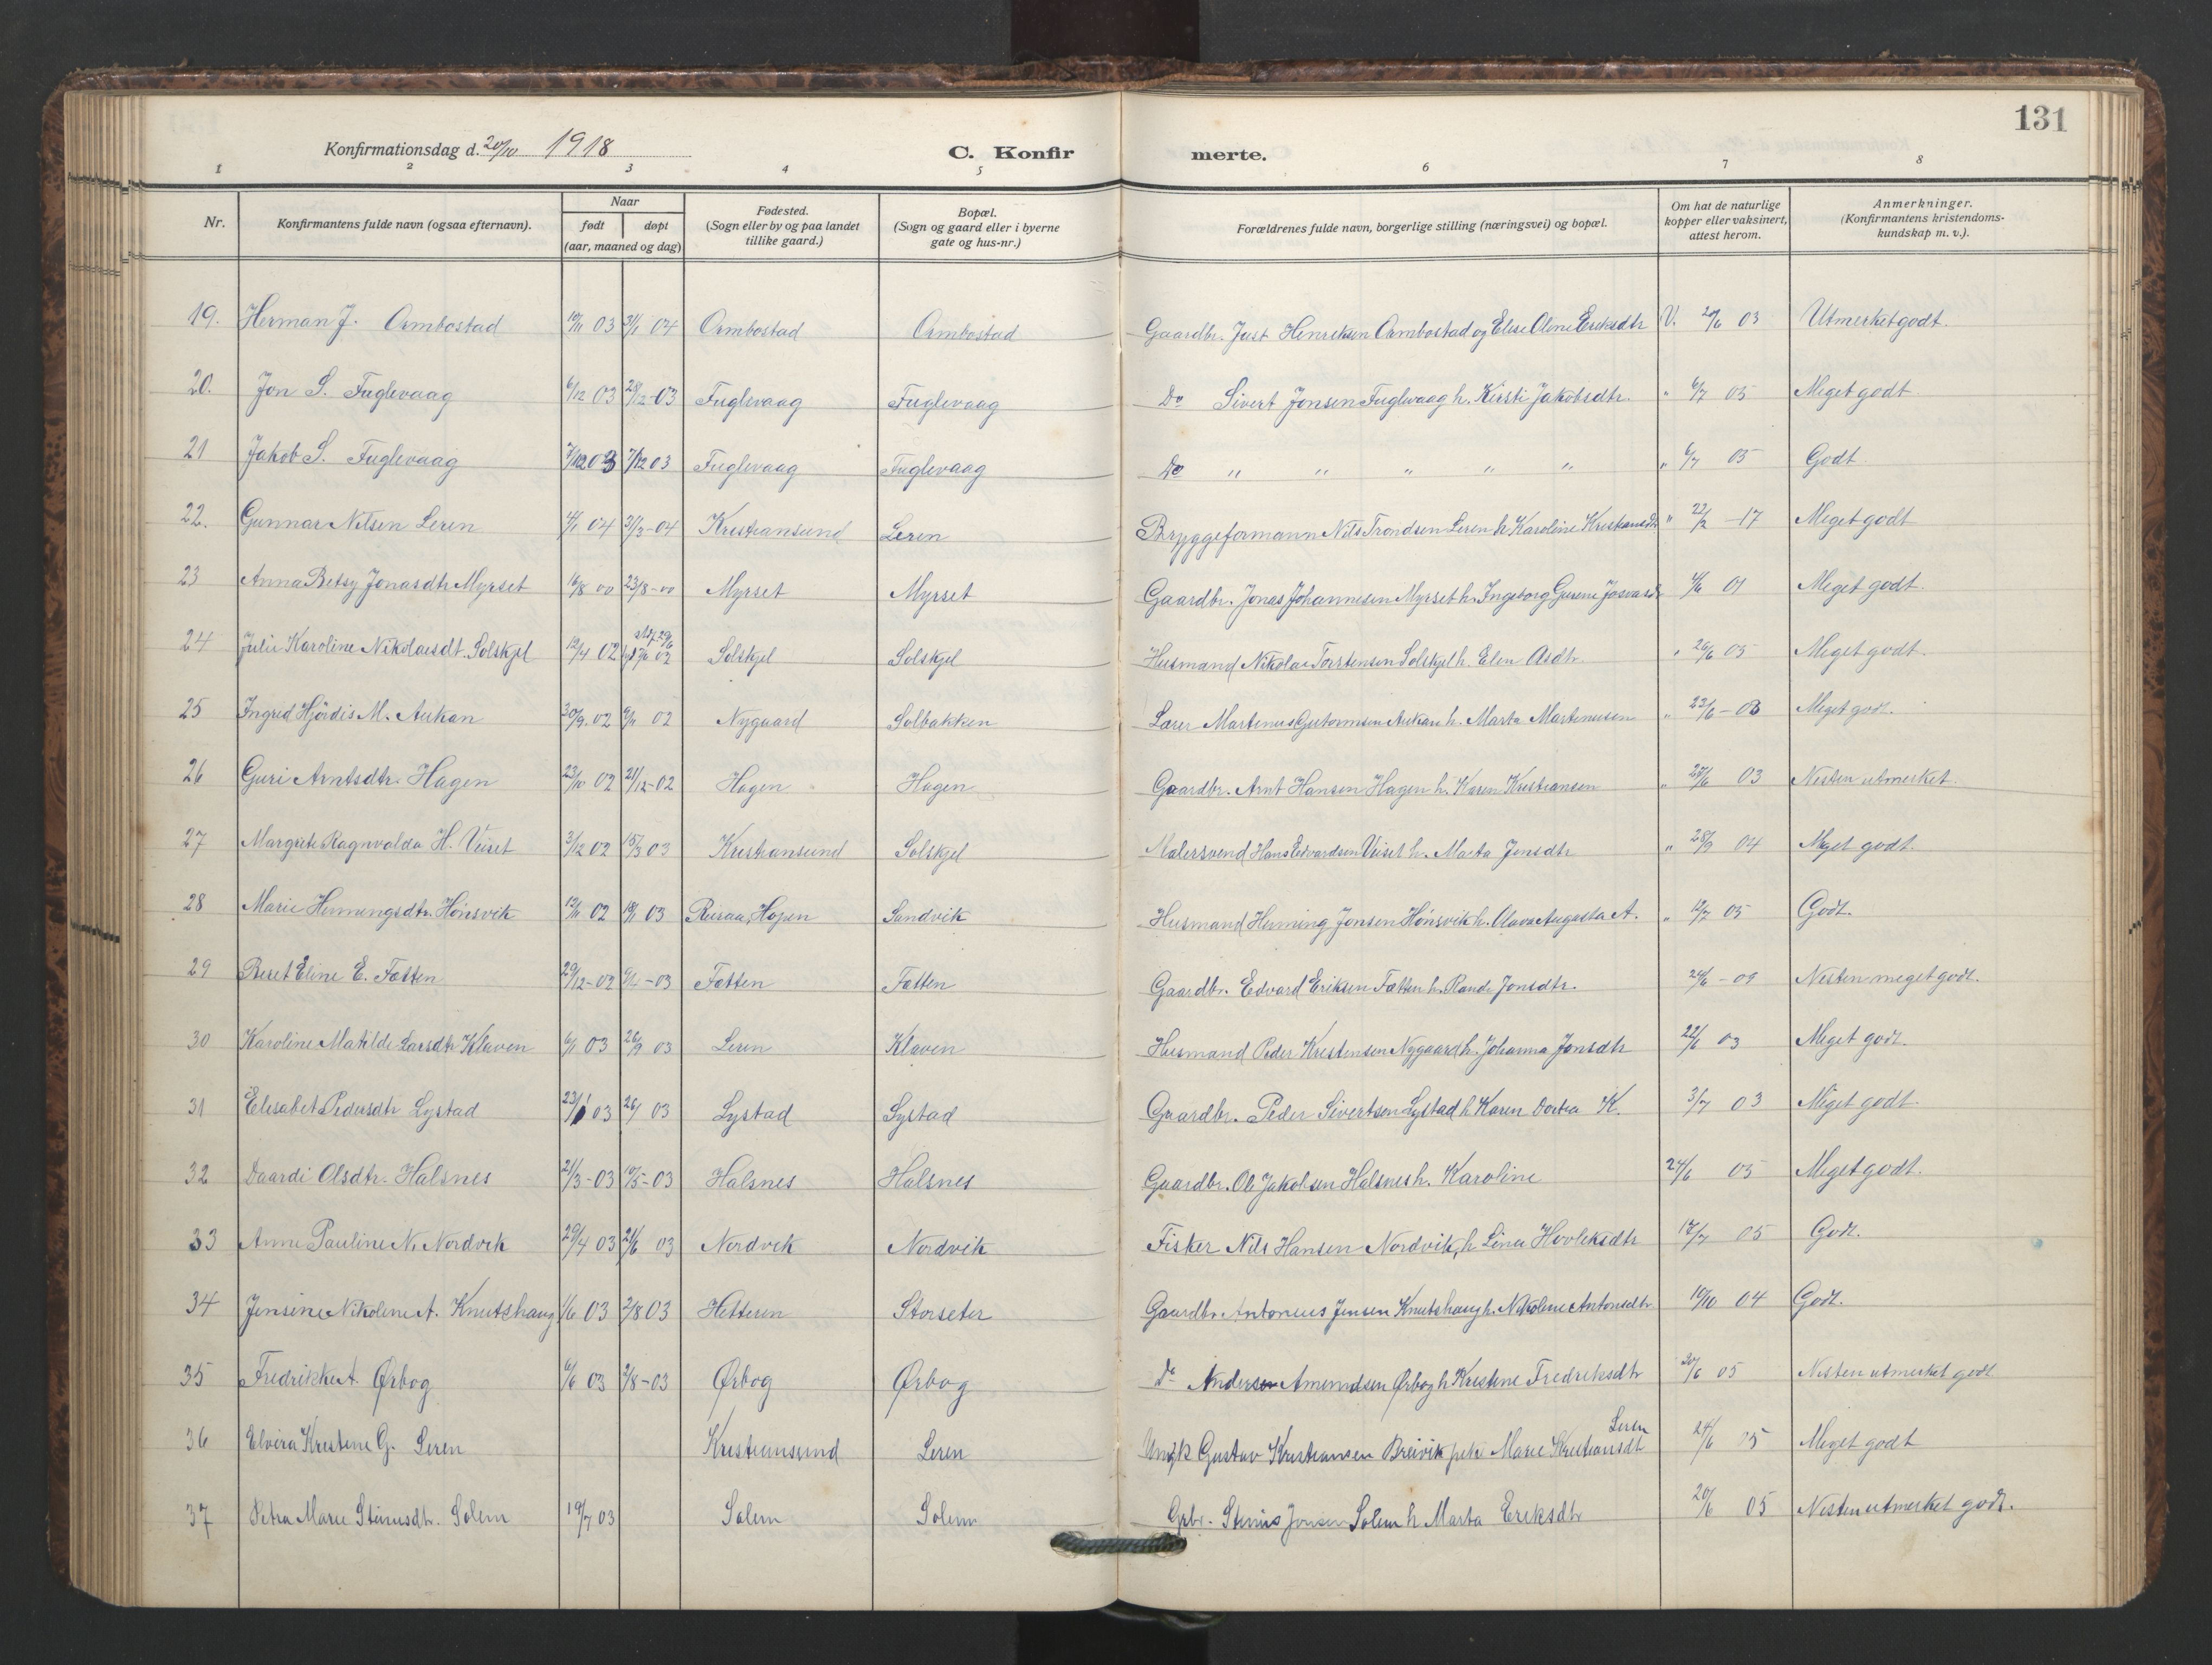 131
Konfirmationsdag d. 20/10 1918
C. Konfirmerte.
1 2 3 4 5 6 7 8
Nr. | Konfirmantens fulde navn (ogsaa efternavn). | Naar født døpt (aar, maaned og dag) | Fødested. (Sogn eller by og paa landet tillike gaard.) | Bopæl. (Sogn og gaard eller i byerne gate og hus-nr.) | Forældrenes fulde navn, borgerlige stilling (næringsvei) og bopæl. | Om hat de naturlige kopper eller vaksinert, attest herom. | Anmerkninger. (Konfirmantens kristendomskundskap m. v.).
19. Herman J. Ormbostad 10/11 03 3/1 04 Ormbostad Ormbostad Gaardbr. Just Henriksen Ormbostad og Elise Oline Eriksdtr V. 03 Utmerket godt.
20. Jon S. Fuglevaag 6/12 03 28/12-03 Fuglevaag Fuglevaag Do Sivert Jonsen Fuglevaag h. Kirsti Jakobsdtr. " 6/7 05 Meget godt
21 Jakob S. Fuglevaag 7/12 03 7/12 03 Fuglevaag Fuglevaag Do " " " " " " 6/7 05 Godt
22. Gunnar Nilsen Leren 4/1 04 3/3-04 Kristiansund Leren Bryggeformann Nils Trondsen Leren h Karoline Kristiansdtr " 22/2 -17 Meget godt
23 Anna Betsy Jonasdtr Myrset 16/8 00 23/8-00 Myrset Myrset Gaardbr. Jonas Johannesen Myrset h. Ingeborg Gurine 4/6 01 Meget godt.
24 Julie Karoline Nikolaisdt. Solskjel 12/4 02 02 Solskjel Solskjel Husmand Nikolai Torstensen Solskjel h. Elen Asdtr. " 26/6 05 Meget godt.
25 Ingrid Hjördis M. Aukan 30/9 02 9/11 02 Nygaard Solbakken Lærer Martenus Guttormsen Aukan h. Marta Martinusen " 23/6-03 Meget godt.
26 Guri Arntsdtr. Hagen 23/10 02 21/12-02 Hagen Hagen Gaardbr. Arnt Hansen Hagen h. Karen Kristiansen " 03 Nesten utmerket.
27 Margrete Ragnvalda H. Veiset 3/12 02 15/3 03 Kristiansund Solskjel Malersvend Hans Edvardsen Veiset h. Marta Jensdtr " 28/9 04 Meget godt.
28 Marie Hemingsdtr. Hönsvik 12/11 02 18/1 03 Hopen Sandvik Husmand Heming Jonsen Hönsvik h. Olava Augusta A. " 12/7 05 Godt.
29 Beret Eline E. Fætten 29/12-02 -03 Fætten Fætten Gaardbr. Edvard Eriksen Fætten h. Randi Jonsdtr. 24/6-09 Nesten meget godt.
30 Karoline Matilde Larsdtr Klaven 6/1 03 03 Leren Klaven Husmand Peder Kristensen Nygaard h. Johanna Jonsdtr 22/6 03 Meget godt.
31 Elisabet Pedersdtr Lystad 23/1 03 26/ 03 Lystad Lystad Gaardbr. Peder Sivertsen Lystad h. Karen Dortea K. 3/7 03 Meget godt.
32 Daardi Olsdtr. Halsnes 21/3-03 10/5-03 Halsnes Halsnes Gaardbr. Ole Jakobsen Halsnes h. Karoline 24/6 05 Meget godt.
33 Anne Pauline N. Nordvik 29/4 03 21/6 03 Nordvik Nordvik Fisker Nils Hansen Nordvik, h Lina 12/7 05 Godt.
34 Jensine Nikoline A. Knutshaug 1/6 03 2/8 03 Hettesen Storseter Gaardbr. Antonius Jensen Knutshaug h. Nikoline Antonsdtr 10/10 04 Godt.
35 Fredrikke A. Ørbog 6/6 03 2/8-03 Ørbog Ørbog Do Anders Amundsen Ørbog h Kristine Fredriksdtr 20/6 05 Nesten utmerket godt
36 Elvira Kristine G. Leren Kristiansund Leren Gustav Kristiansen Breivik Marie Kristiansdt Leren 24/6 05 Meget godt
37 Petra Marie Steinusdtr. Solem 19/7 03 Solem Solem Gbr. Steinus Jonsen Solem h Marta Eriksdtr 20/6 05 Nesten utmerket godt.